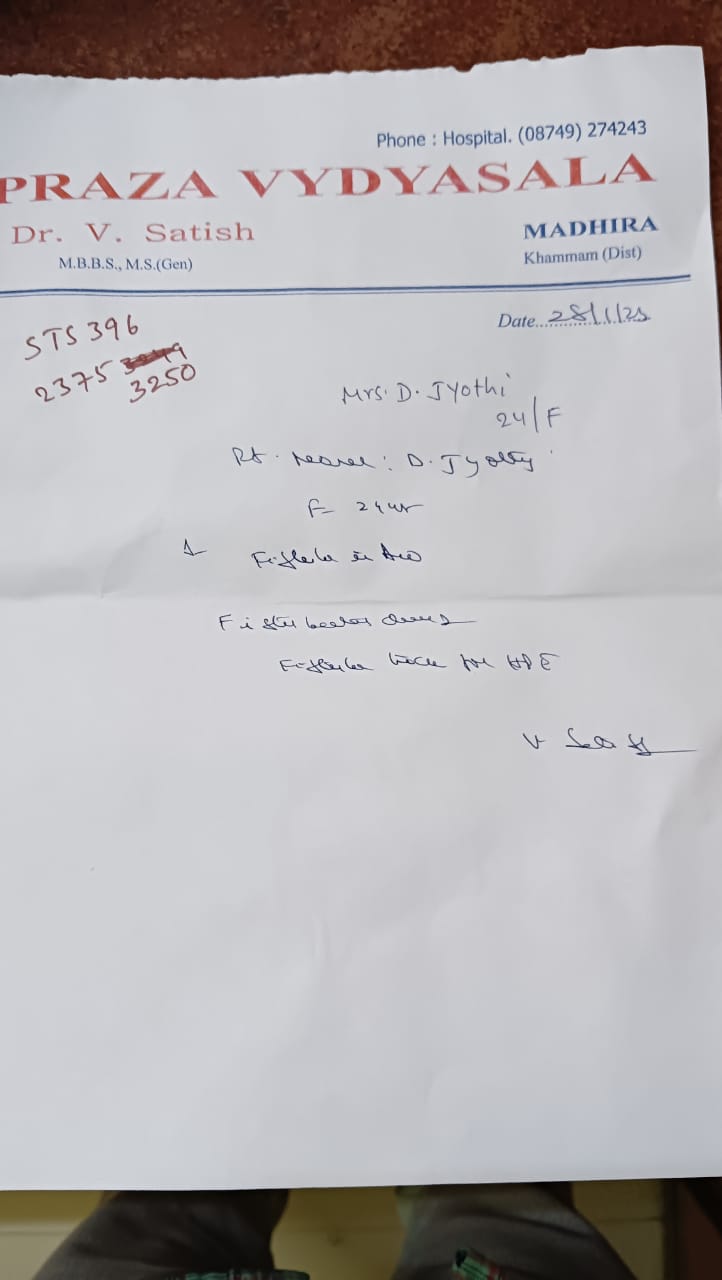 Phone : Hospital. (08749) 274243
PRAZA VYDYASALA
Dr. V. Satish
MADHIRA
M.B.B.S., M.S.(Gen)
Khammam (Dist)
Date 28/1/25
STS 396
2375
3250
Mrs. D. Jyothi
24/F
Pt. name : D. Jyothy
F 24yr
Fistula in Ano
Fistulectomy done
Fistula track for HPE